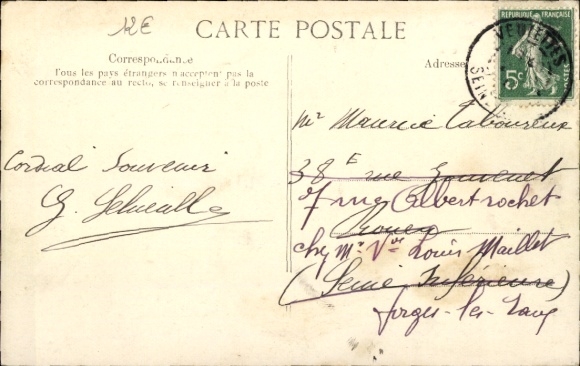 12E
CARTE POSTALE
Correspondance
Tous les pays étrangers n'acceptent pas la
correspondance au recto, se renseigner à la poste
Adresse
RÉPUBLIQUE FRANÇAISE
5c
POSTES
VEULETTES
SEINE
Cordial Souvenir
G.
Mr Maurice Taboureux
38E rue
7 rue Albert rochet
Rouen
chez Mr Vve Louis Maillet
(Seine Inférieure)
forges-les-Eaux